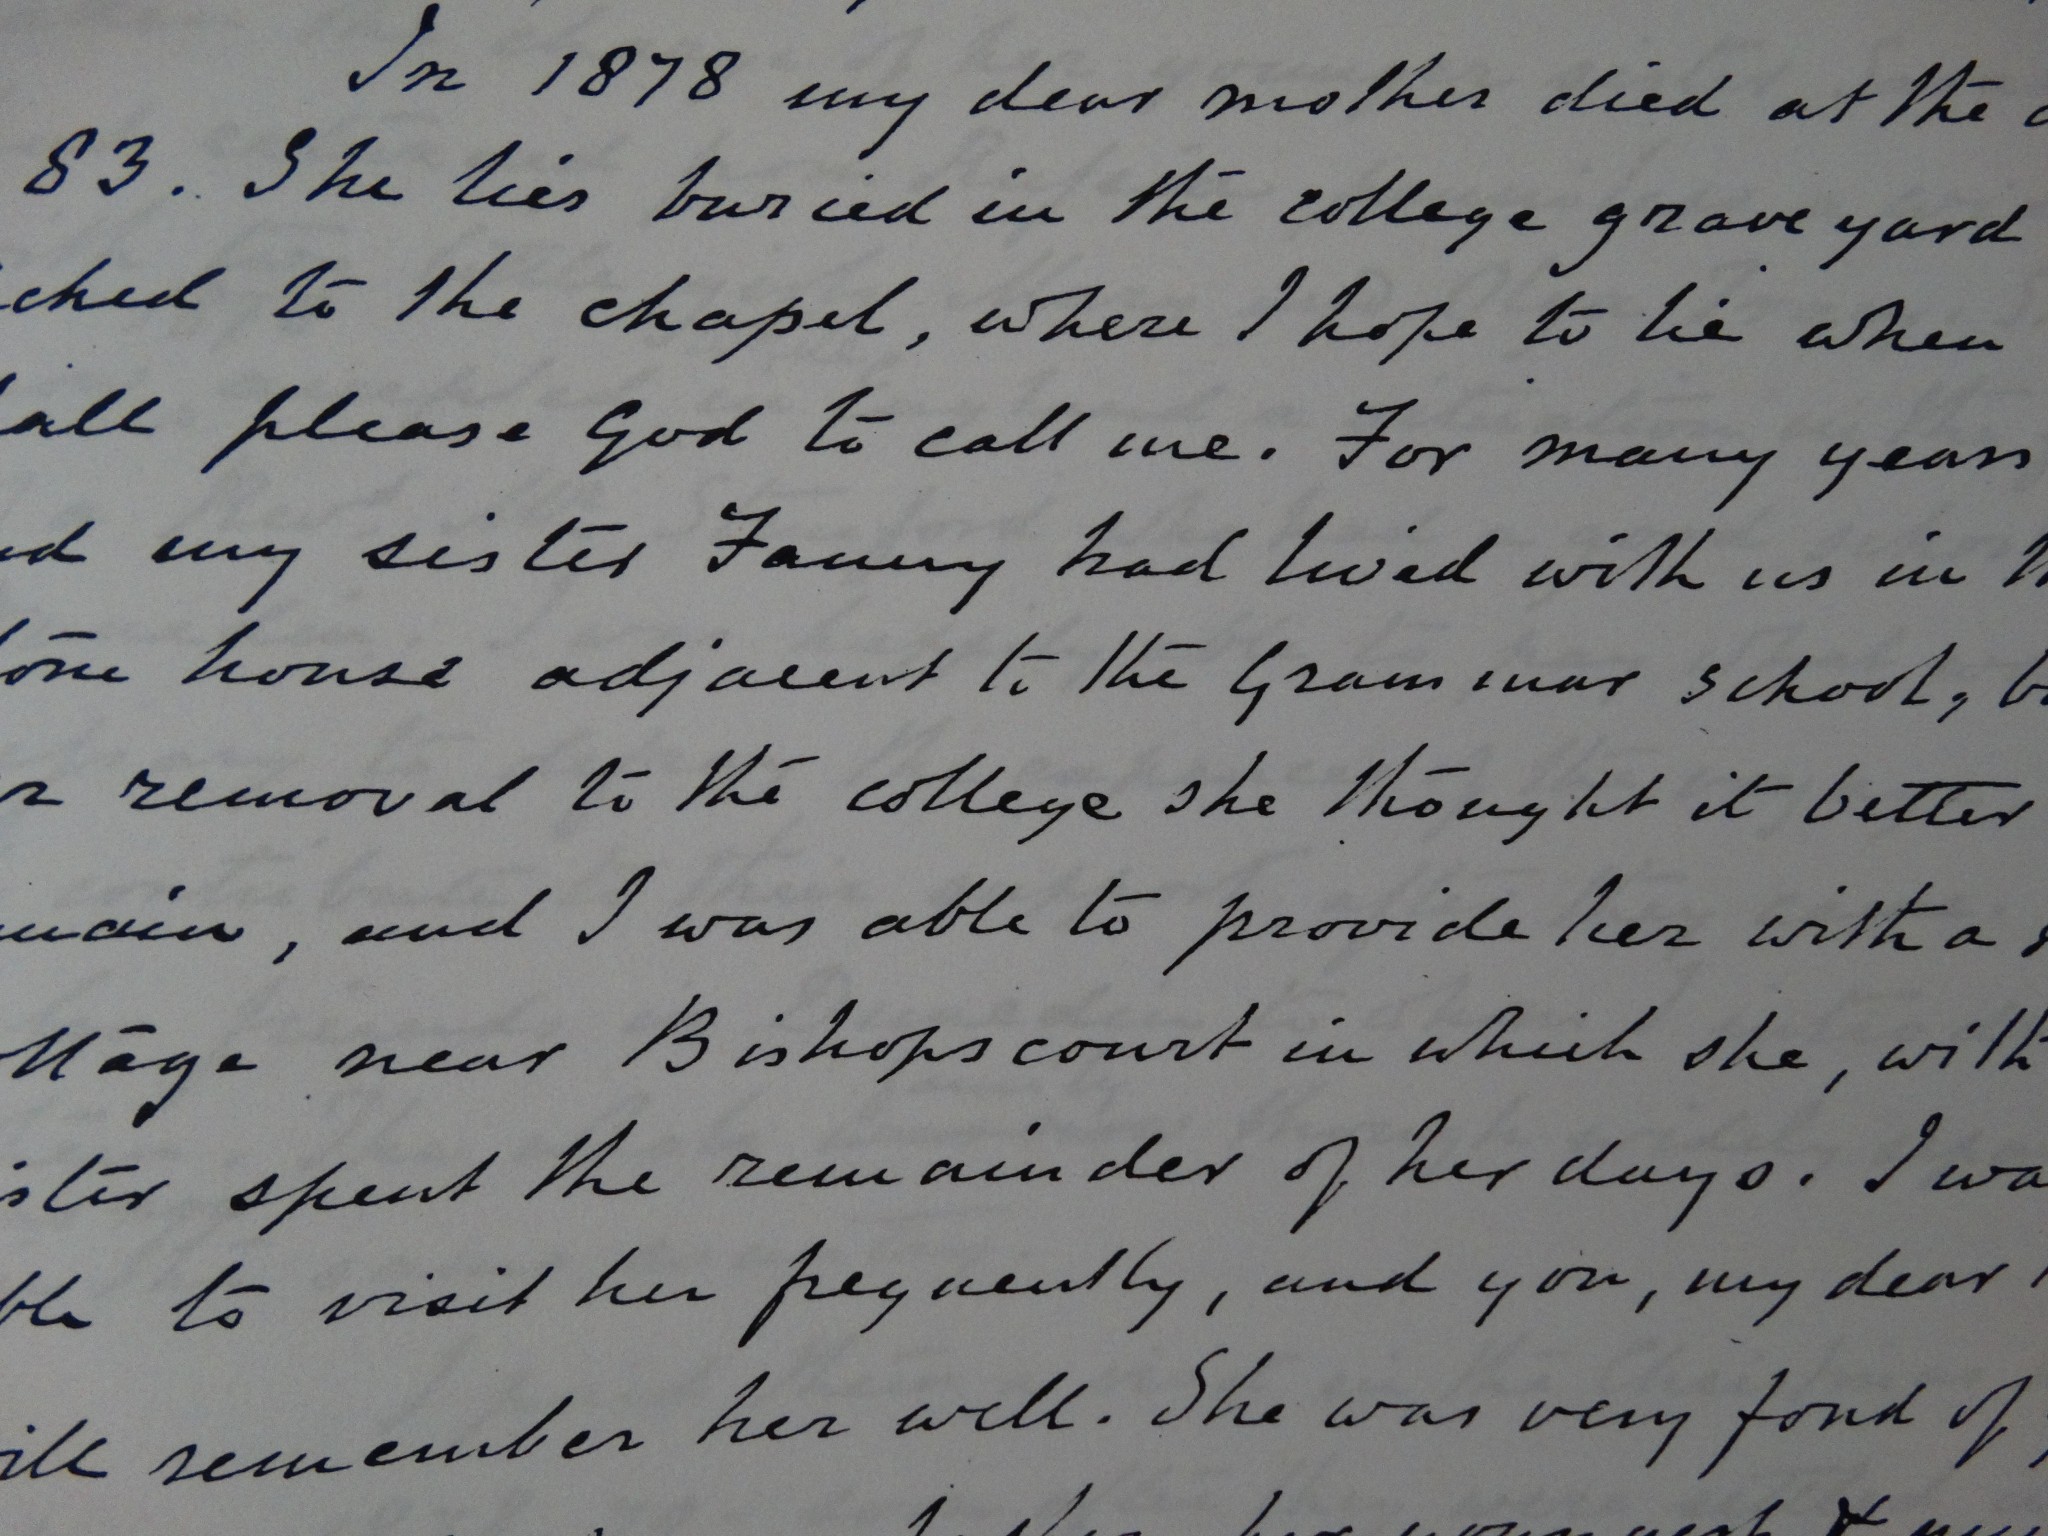 In 1878 my dear mother died at the
83. She lies buried in the college grave yard
ched to the chapel, where I hope to lie when
all please God to call me. For many years
my sister Fanny had lived with us in
house adjacent to the Grammar school,
removal to the college she thought it better
main, and I was able to provide her with a
ttage near Bishopscourt in which she, with
ister spent the remainder of her days. I wa
ble to visit her frequently, and you, my dear
ill remember her well. She was very fond of